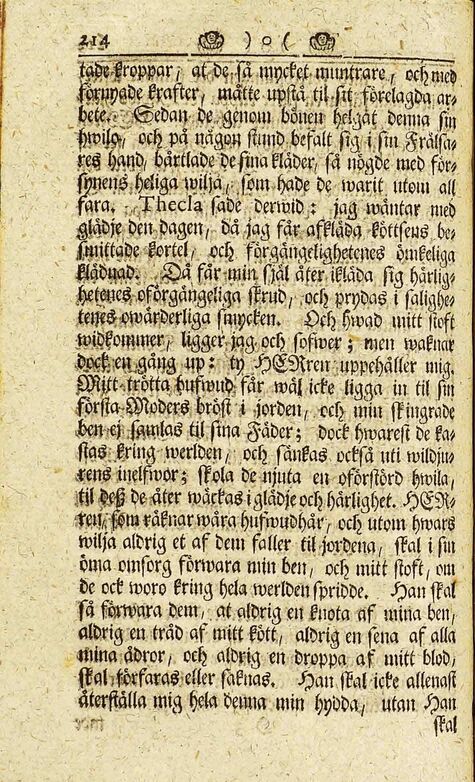 214 ) o (
tade kroppar, at de så mycket muntrare, och med
förnyade krafter, måtte upstå til sit förelagda ar-
bete. Sedan de genom bönen helgat denna sin
hwila, och på någon stund befalt sig i sin Frälsa-
res hand, bårtlade de sina kläder, så nögde med för-
synens heliga wilja, som hade de warit utom all
fara. Thecla sade derwid: jag wäntar med
glädje den dagen, då jag får afkläda köttsens be-
smittade kortel, och förgängelighetenes ömkeliga
klädnad. Då får min själ åter ikläda sig härlig-
hetenes oförgängeliga skrud, och prydas i salighe-
tenes owärderliga smycken. Och hwad mitt stoft
widkommer, ligger jag och sofwer; men waknar
dock en gång up: ty HERren uppehåller mig.
Mitt trötta hufwud får wäl icke ligga in til sin
första Moders bröst i jorden, och min skingrade
ben ej samlas til sina Fäder; dock hwarest de ka-
stas kring werlden, och sänkas också uti wildju-
rens inelfwor; skola de njuta en oförstörd hwila,
til deß de åter wäckas i glädje och härlighet. HER-
ren, som räknar wåra hufwudhår, och utom hwars
wilja aldrig et af dem faller til jordena, skal i sin
öma omsorg förwara min ben, och mitt stoft, om
de ock woro kring hela werlden spridde. Han skal
så förwara dem, at aldrig en knota af mina ben,
aldrig en tråd af mitt kött, aldrig en sena af alla
mina ådror, och aldrig en droppa af mitt blod,
skal förfaras eller saknas. Han skal icke allenast
återställa mig hela denna min hydda, utan Han
skal